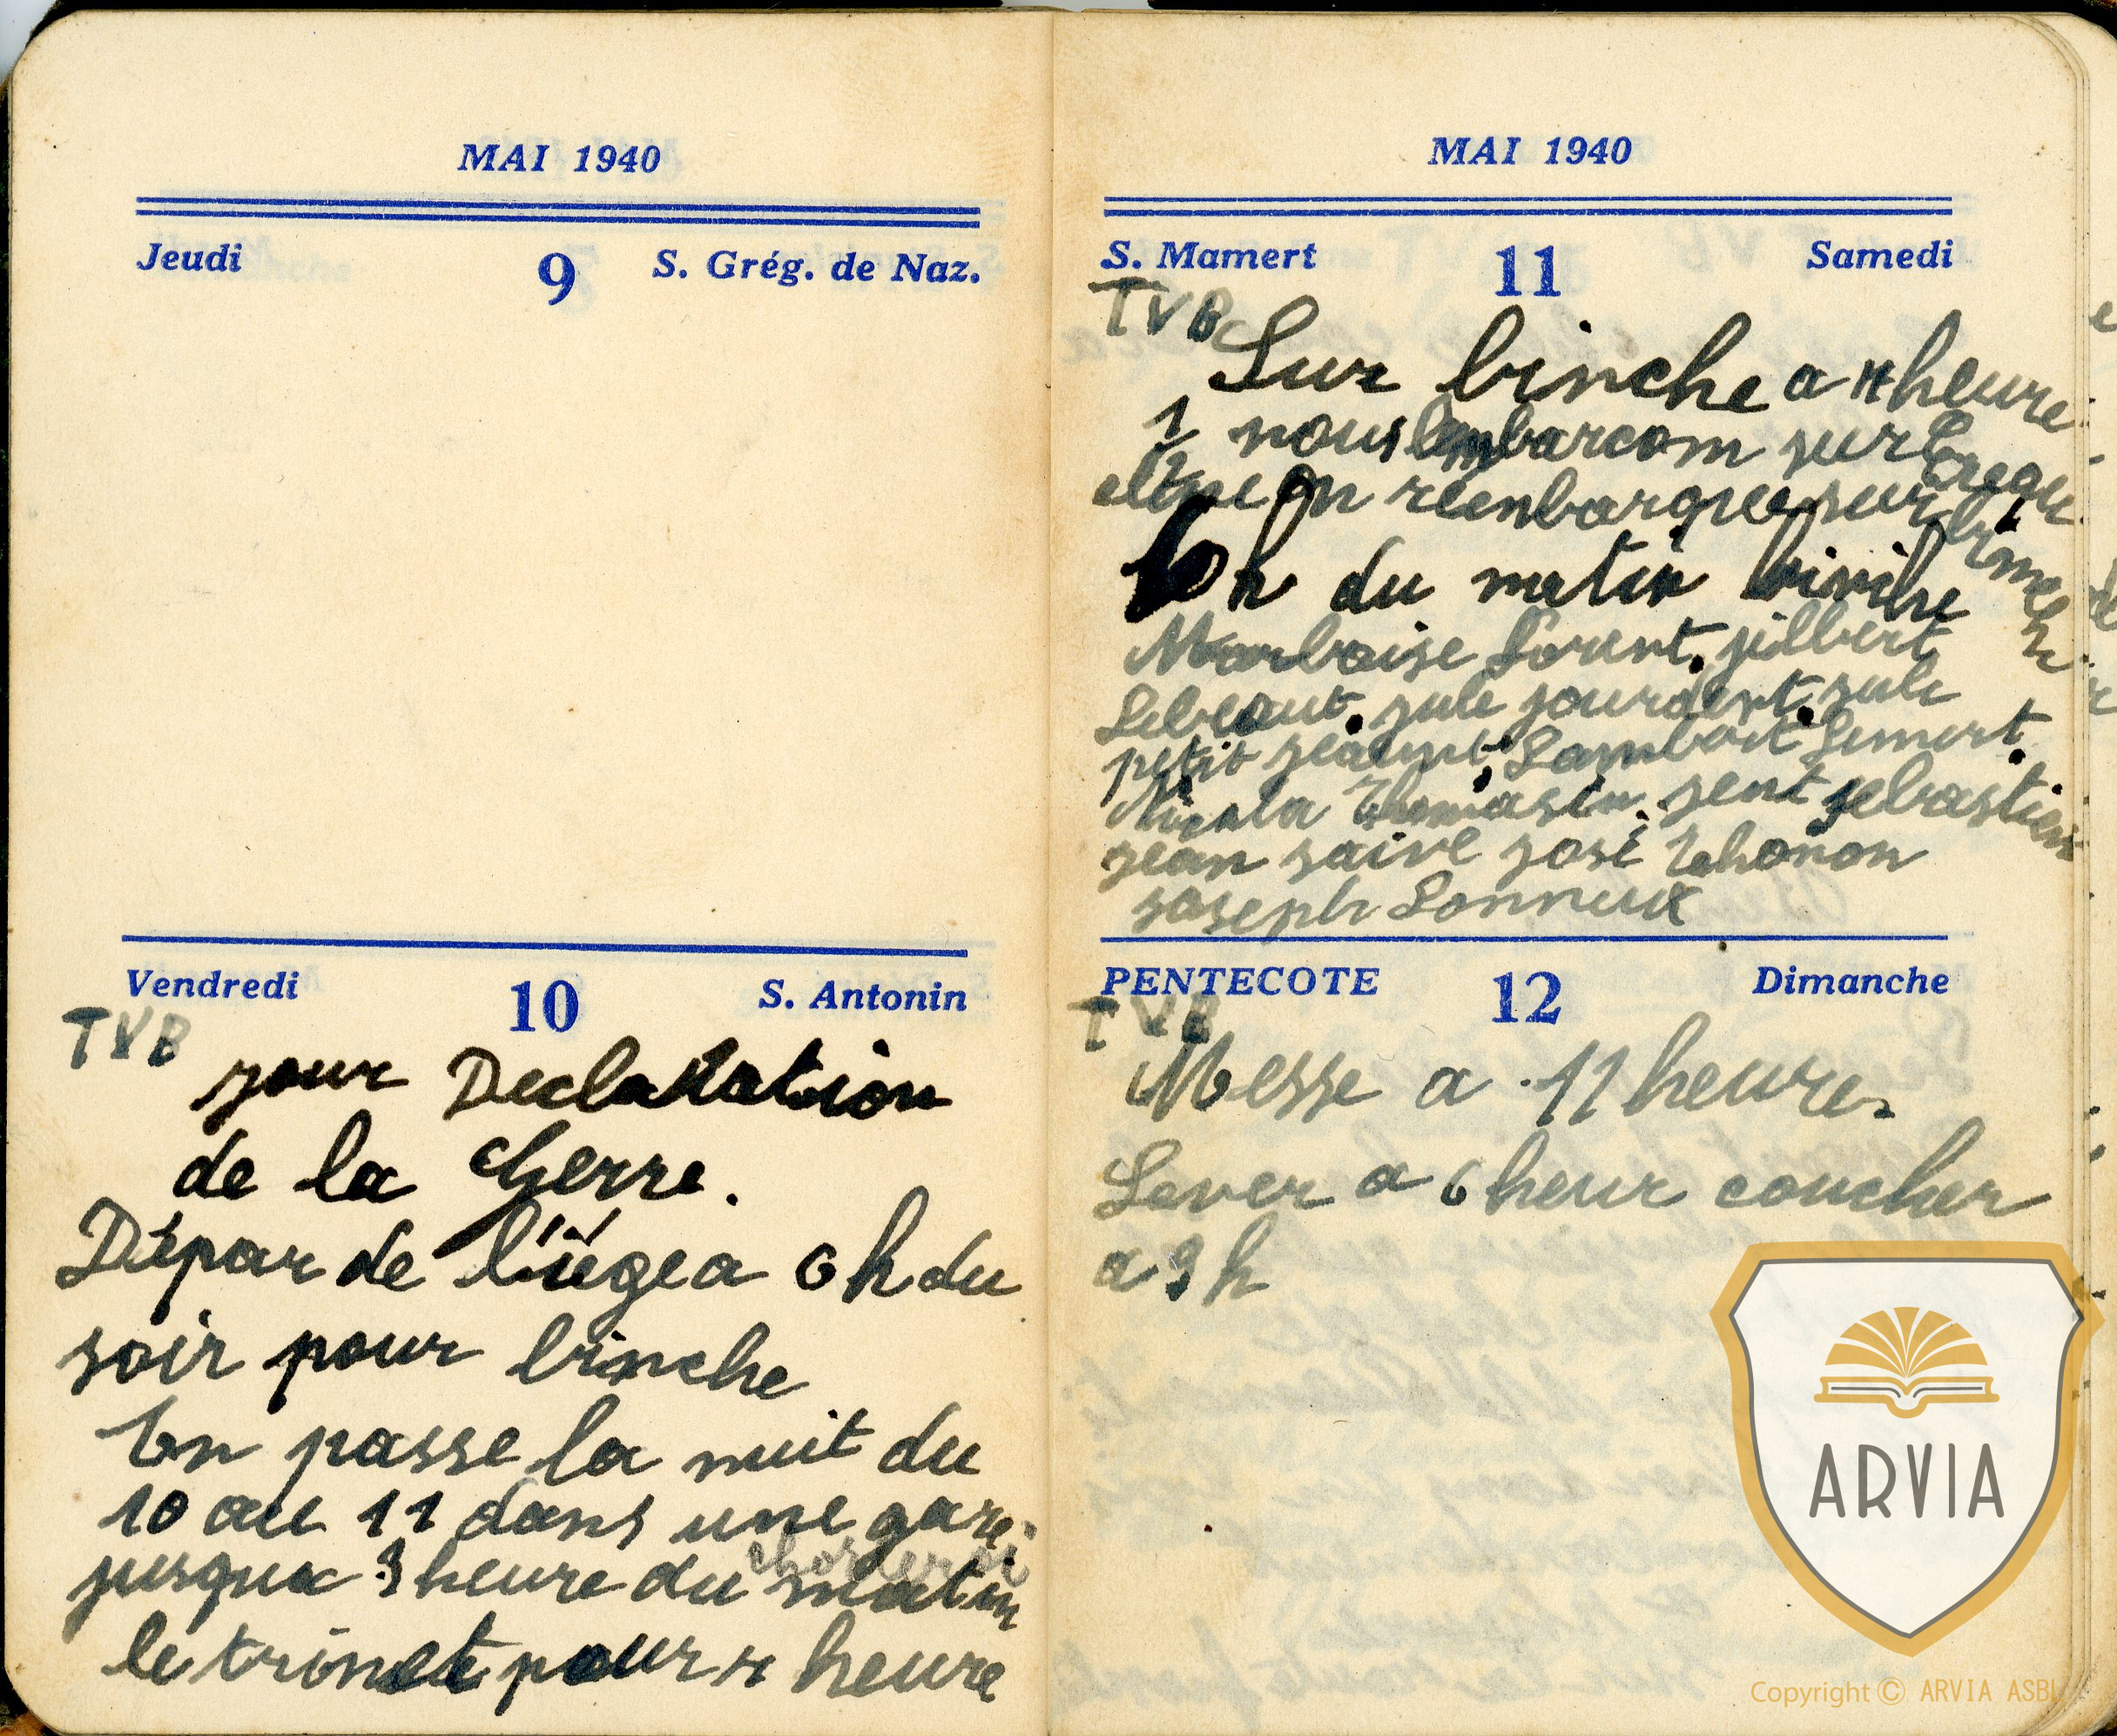 MAI 1940
Jeudi 9 S. Grég. de Naz.
Vendredi 10 S. Antonin
TVB
jour Declaration
de la Gerre.
Dépar de liége a 6 h du
soir pour binche
En passe la nuit du
10 au 11 dans une gare
jusqua 3 heure du matin
le pour 4 heure
MAI 1940
S. Mamert 11 Samedi
TVB
Sur binche a 4 heure
1/2 nous embarcom sur
On reenbarque sur
binche
6 h du matin binche
Marbaise Lorent. jilbert
jule jourdent. jule
petit Lambert
Thomasin. jent sebastien
jean saive josé thonon
joseph Lonneux
PENTECOTE 12 Dimanche
TVB
Messe a 11 heure.
Lever a 6 heur coucher
a 9 h
ARVIA
Copyright © ARVIA ASBL